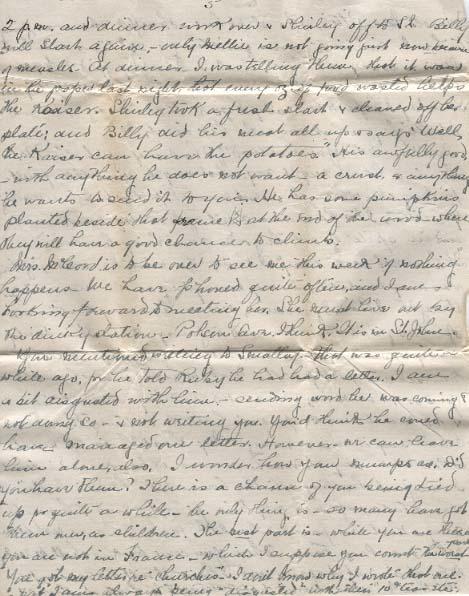 5
2 p.m. and dinner work over & Shirley off to Sk. Billy
will start again, - only Nellie is not going just now because
of measles. At dinner I was telling them, that it was
in the paper last night that every oz. of food wasted helps
the Kaiser. Shirley took a fresh start & cleaned off her
plate; and Billy did his meat all up & says "Well
the Kaiser can have the potatoes." He is awfully good
- with anything he does not want - a crust & anything
he wants to send it to you. He has some pumpkins
planted beside that at the end of the wood where
they will have a good chance to climb.
Mrs. McCord is to be over to see me this week if nothing
happens. We have phoned quite often, and I am
looking forward to meeting her. She must live out by
the station - Ave. I think. It is in St. John.
You mentioned writing to Smalley - that was quite a
while ago, for he told Ruby he had had a letter. I am
a bit disgusted with him, - sending word he was coming &
not doing so - & not writing you. You'd think he could
have managed one letter. However we can leave
him alone, also. I wonder how you mumps as. Did
you have them? There is a chance of you being tied
up for quite a while - the only thing is - so many have got
them over, as children. The best part is - while you are there
you are not in France - which I suppose you count the worst part.
You got my letter re "churches". I don't know why I wrote that one.
"disgusted" with them